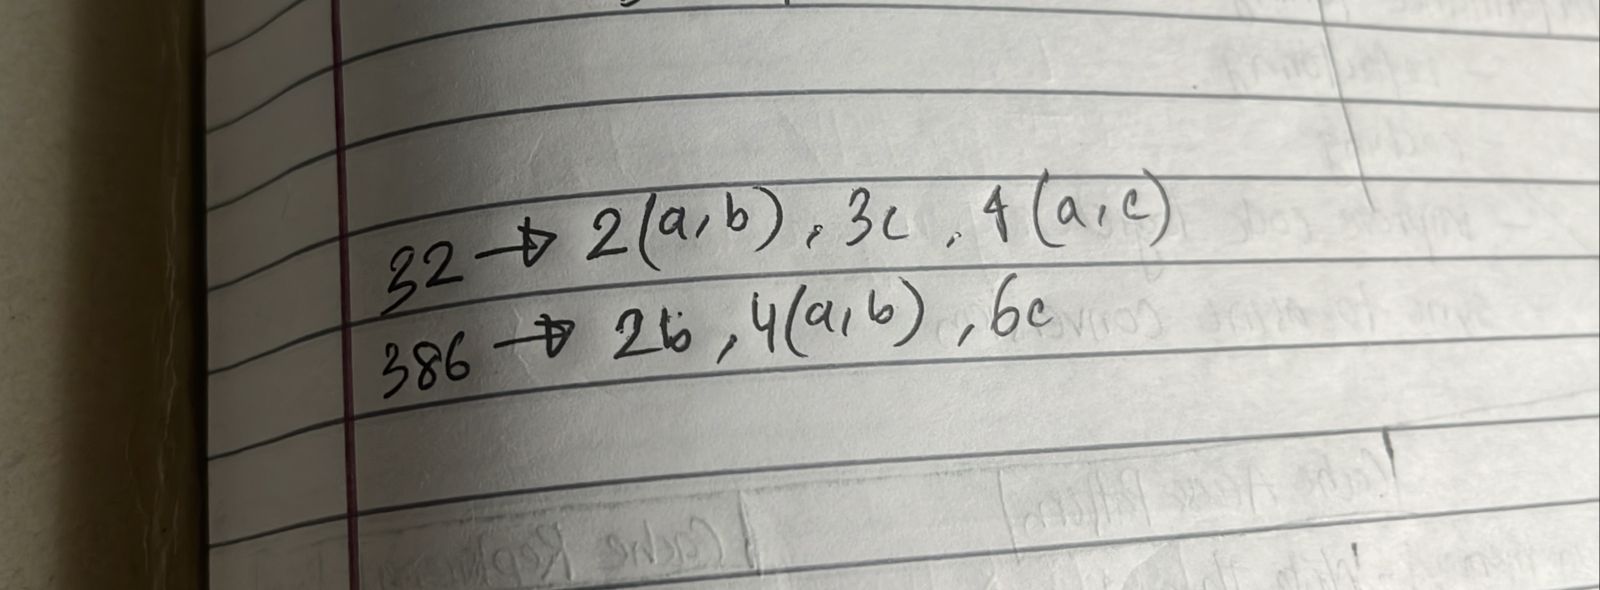 32 → 2(a,b), 3c, 4(a,c)
386 → 2b, 4(a,b), 6c